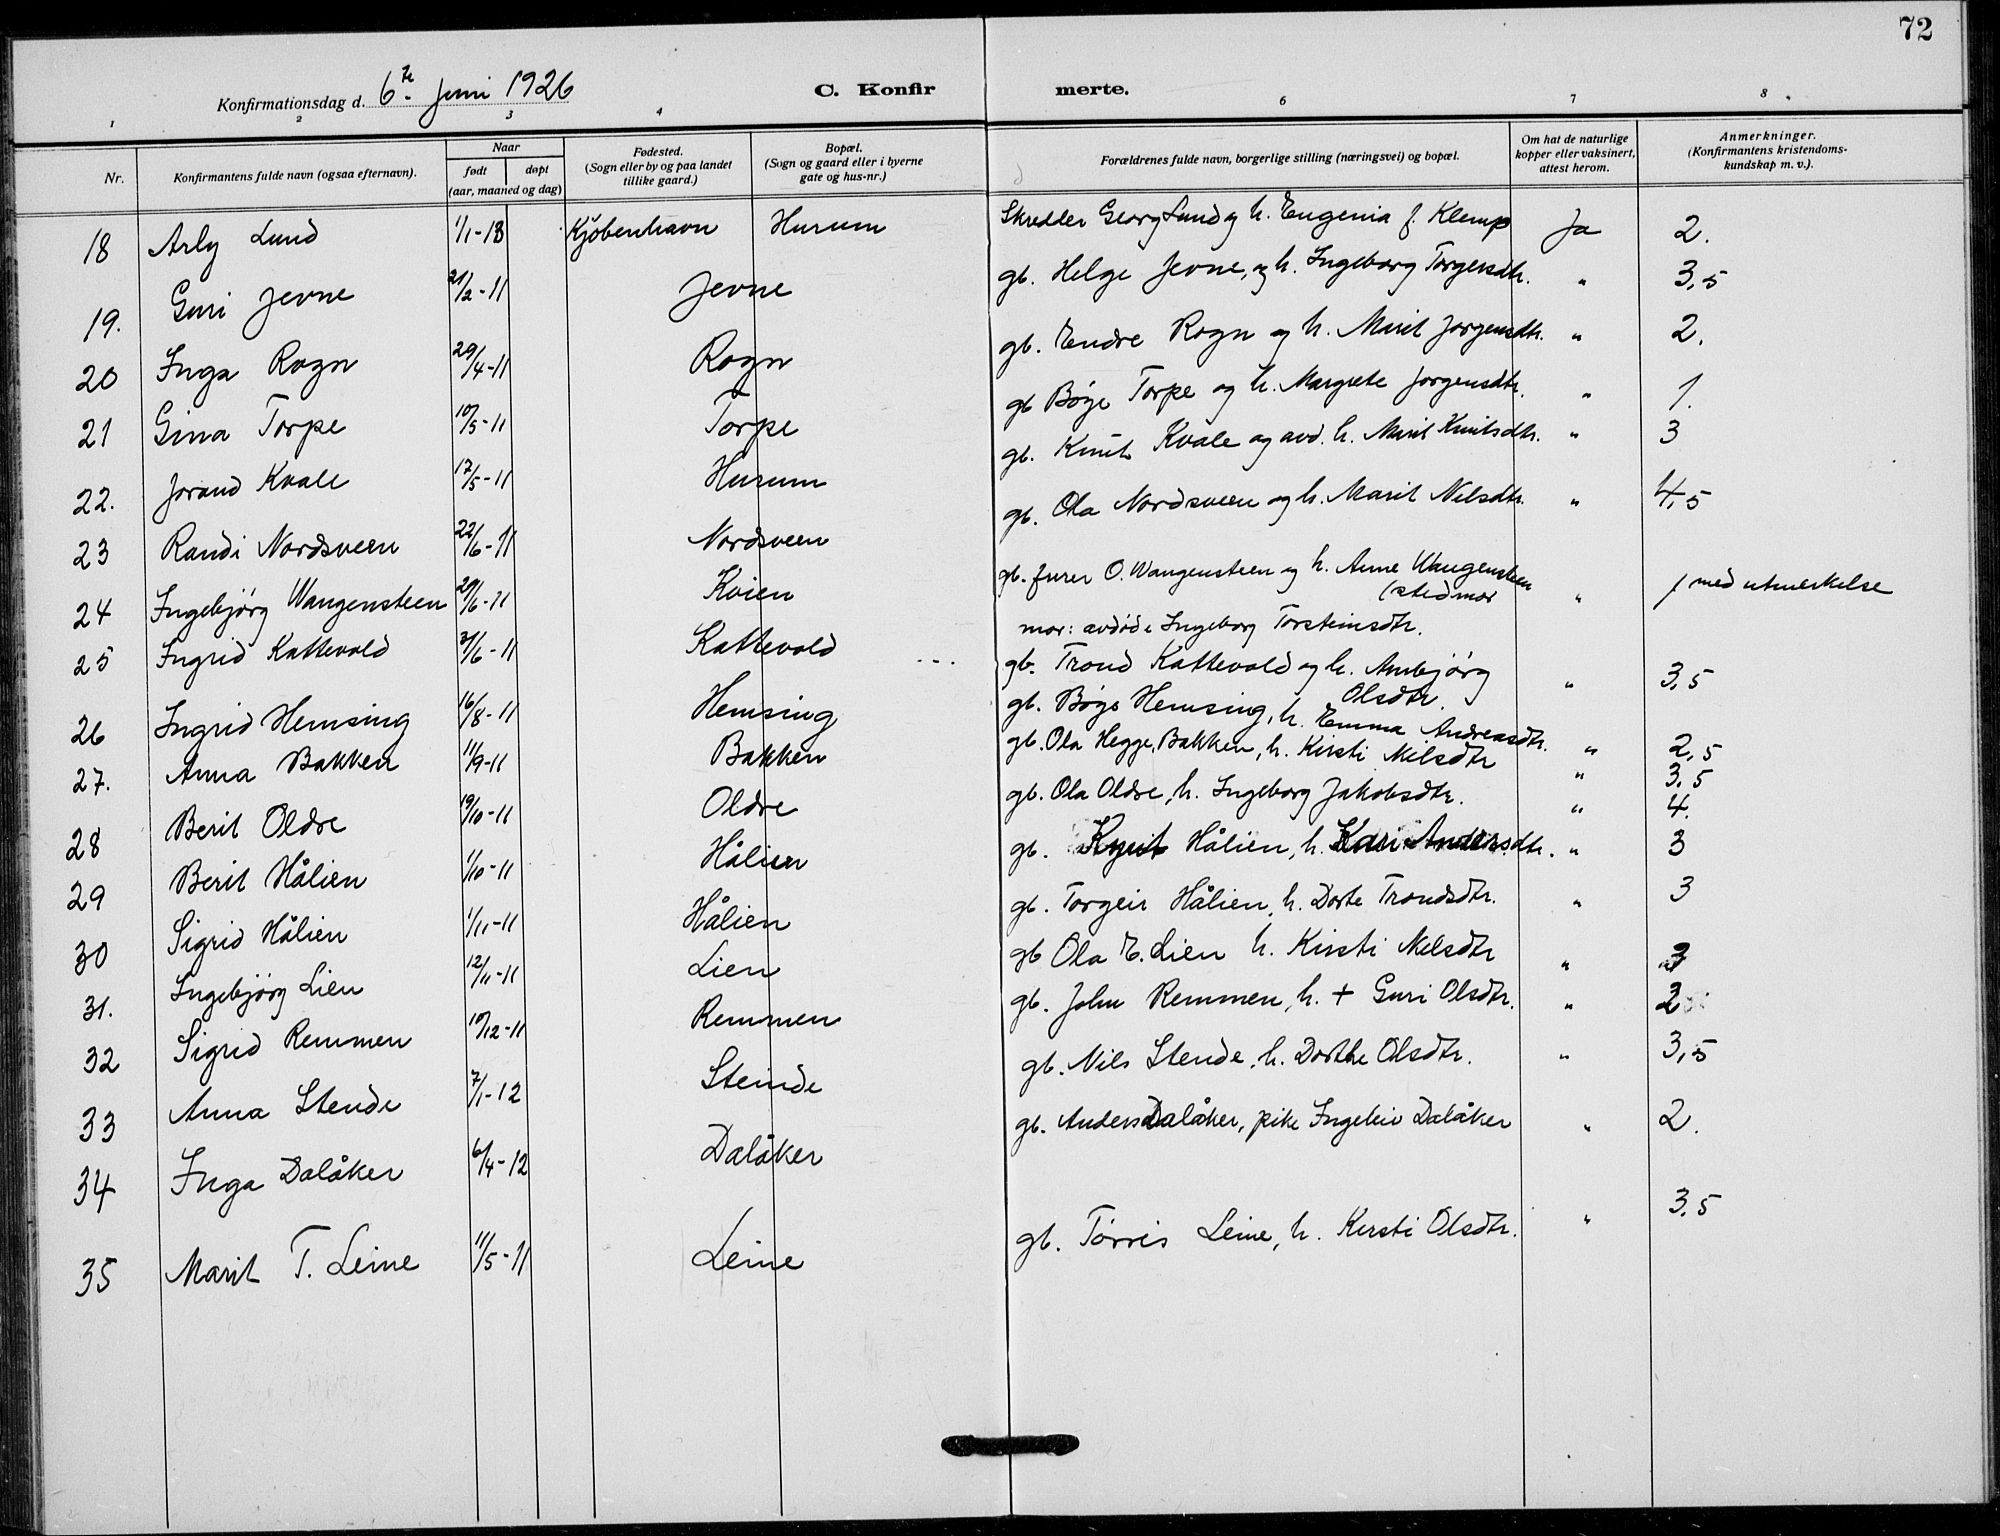 72
Konfirmationsdag d. 6te juni 1926 C. Konfir merte.
1 2 3 4 6 7 8
Nr. Konfirmantens fulde navn (ogsaa efternavn). Naar født døpt (aar, maaned og dag) Fødested. (Sogn eller by og paa landet tillike gaard.) Bopæl. (Sogn og gaard eller i byerne gate og hus-nr.) Forældrenes fulde navn, borgerlige stilling (næringsvei) og bopæl. Om hat de naturlige kopper eller vaksinert, attest herom. Anmerkninger. (Konfirmantens kristendoms-kundskap m. v.).
18 Arly Lund 1/1-13 Kjøbenhavn Hurum Skredder Georg Lund og h. Eugenia f. Klemp Ja 2.
19. Guri Jevne 21/2-11 Jevne gb. Helge Jevne, og h. Ingeborg Torgersdtr. " 3,5
20 Inga Rogn 29/4-11 Rogn gb. Endre Rogn og h. Marit Jørgensdtr. " 2.
21 Gina Torpe 10/5-11 Torpe gb Bøye Torpe og h. Margrete Jørgensdtr. " 1.
22. Jorand Kvale 17/5-11 Hurum gb. Knut Kvale og avd. h. Marit Knutsdtr. " 3
23 Randi Nordsveen 22/6-11 Nordsveen gb. Ola Nordsveen og h. Marit Nilsdtr. " 4,5
24 Ingebjørg Wangensteen 29/6-11 Kvien gb. furer O. Wangensteen og h. Anne Wangensteen " 1 med utmerkelse
(stedmor
mor: avdøde Ingeborg Torsteinsdtr.
25 Ingrid Kattevold 3/6-11 Kattevold gb. Trond Kattevold og h. Ambjørg " 3,5
Olsdtr.
26 Ingrid Hemsing 16/8-11 Hemsing gb. Bøye Hemsing, h. Emma Andreasdtr. " 2,5
27. Anna Bakken 11/9-11 Bakken gb. Ola Hegge Bakken, h. Kirsti Nilsdtr " 3,5
28 Berit Oldre 19/10-11 Oldre gb. Ola Oldre, h. Ingeborg Jakobsdtr. " 4.
29 Berit Hålien 1/10-11 Hålien gb. Knut Hålien, h. Kari Andersdtr. " 3
30 Sigrid Hålien 1/11-11 Hålien gb. Torgeir Hålien, h. Dorte Trondsdtr. " 3
31. Ingebjørg Lien 12/11-11 Lien gb Ola E. Lien h. Kirsti Nilsdtr " 3
32 Sigrid Remmen 10/12-11 Remmen gb. John Remmen, h. + Guri Olsdtr. " 2
33 Anna Stende 7/1-12 Steinde gb. Nils Stende, h. Dorthe Olsdtr. " 3,5
34 Inga Dalåker 6/4-12 Dalåker gb. Anders Dalåker, pike Ingeleiv Dalåker " 2.
35 Marit T. Leine 11/5-11 Leine gb. Tørris Leine, h. Kersti Olsdtr. " 3,5